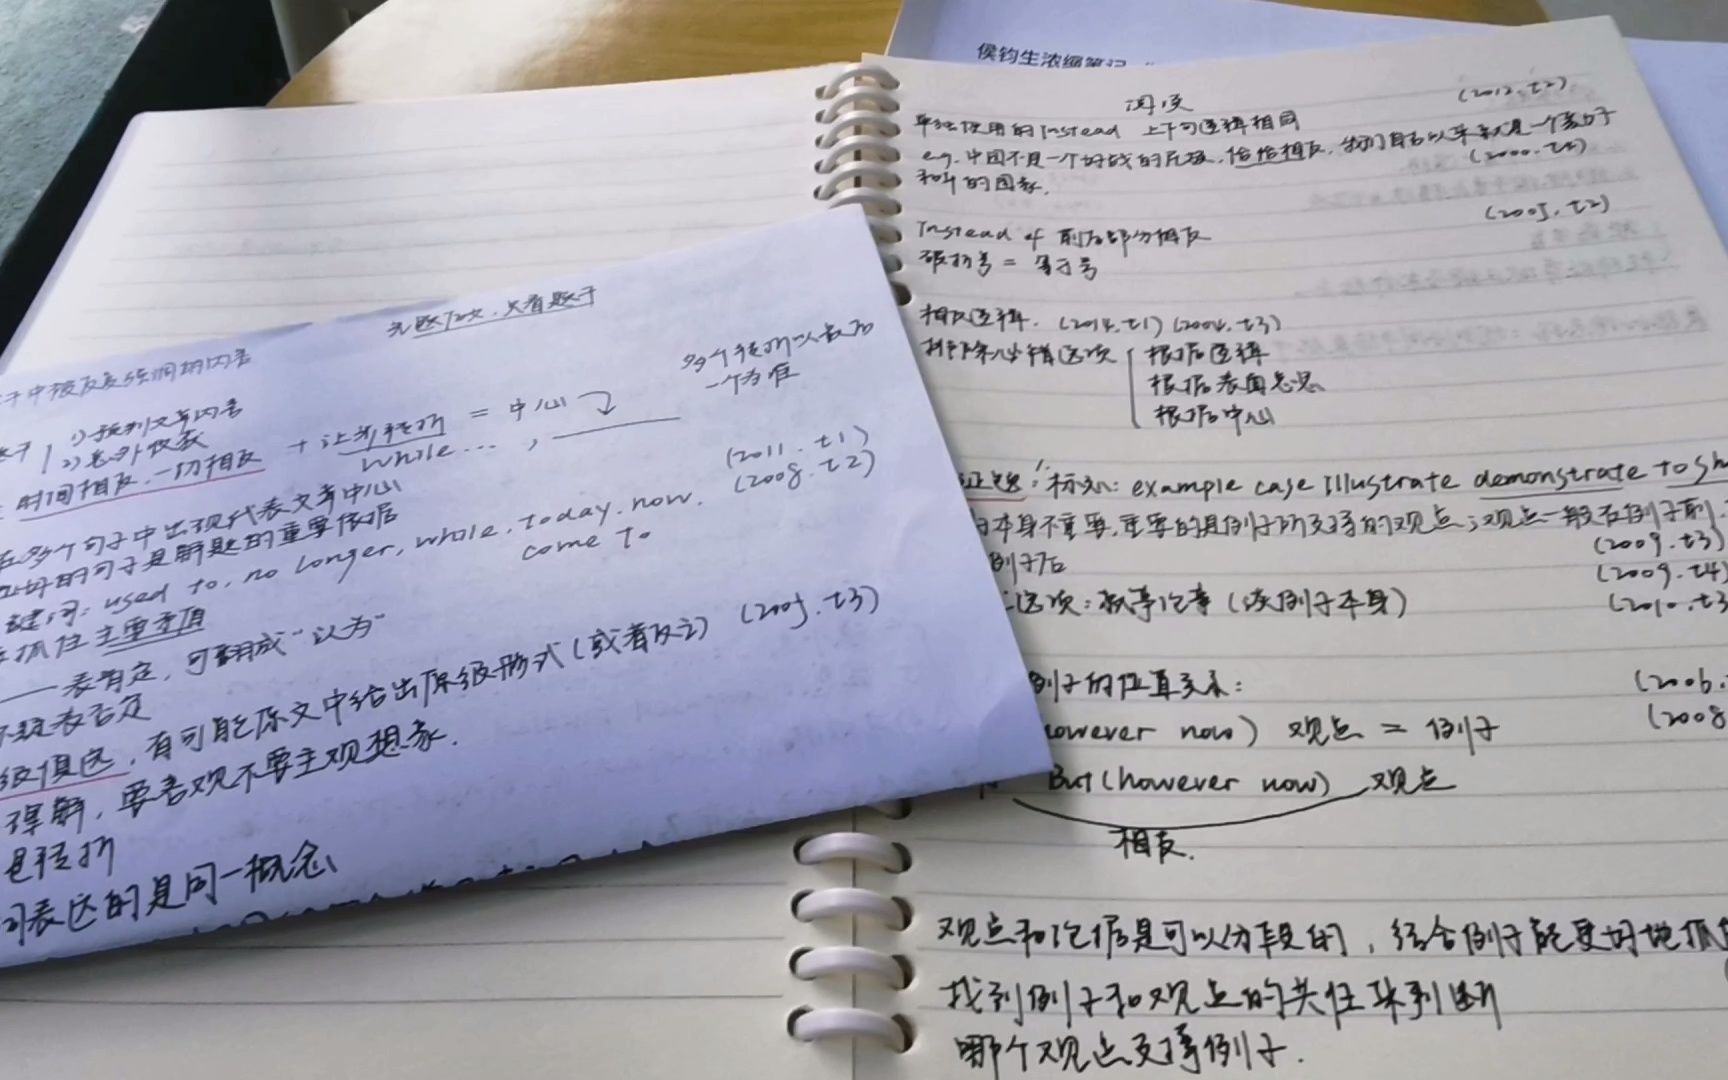 侯钧生浓缩笔记
阅读
(2012.t2)
单独使用的Instead 上下句逻辑相同
eg.中国不是一个好战的民族,恰恰相反,我们自古以来就是一个
和平的国家.
(2005.t2)
Instead of 前后部分相反
破折号 = 等于号
相反逻辑. (2014.t1) (2004.t3)
排除必错选项
根据逻辑
根据表面意思
根据中心
标志: example case Illustrate demonstrate to sh
本身不重要,重要的是例子所支持的观点;观点一般在例子前.
例子后
(2009.t3)
(2009.t4)
选项:就事论事(谈例子本身)
(2010.t3
例子的位置关系:
(2006.
owever now) 观点 = 例子
(2008
But(however now) 观点
相反.
观点和论据是可以分段的,结合例子能更好地抓
找到例子和观点的共性来判断
哪个观点支撑例子.
先题后文,只看题干
干中被反复强调的内容
多个转折以最后
一个为准
1)预判文章内容
2)意外收获
+ 让步转折 = 中心
while...,
时间相反,一切相反
(2011.t1)
(2008.t2)
在多个句子中出现代表文章中心
的句子是解题的重要依据
键词: used to, no longer, while, today, now.
come to
抓住主要矛盾
表肯定,可翻成“认为”
表否定
级慎选,有可能原文中给出原级形式(或者反之) (2005.t3)
理解,要客观不要主观想象.
是转折
词表达的是同一概念